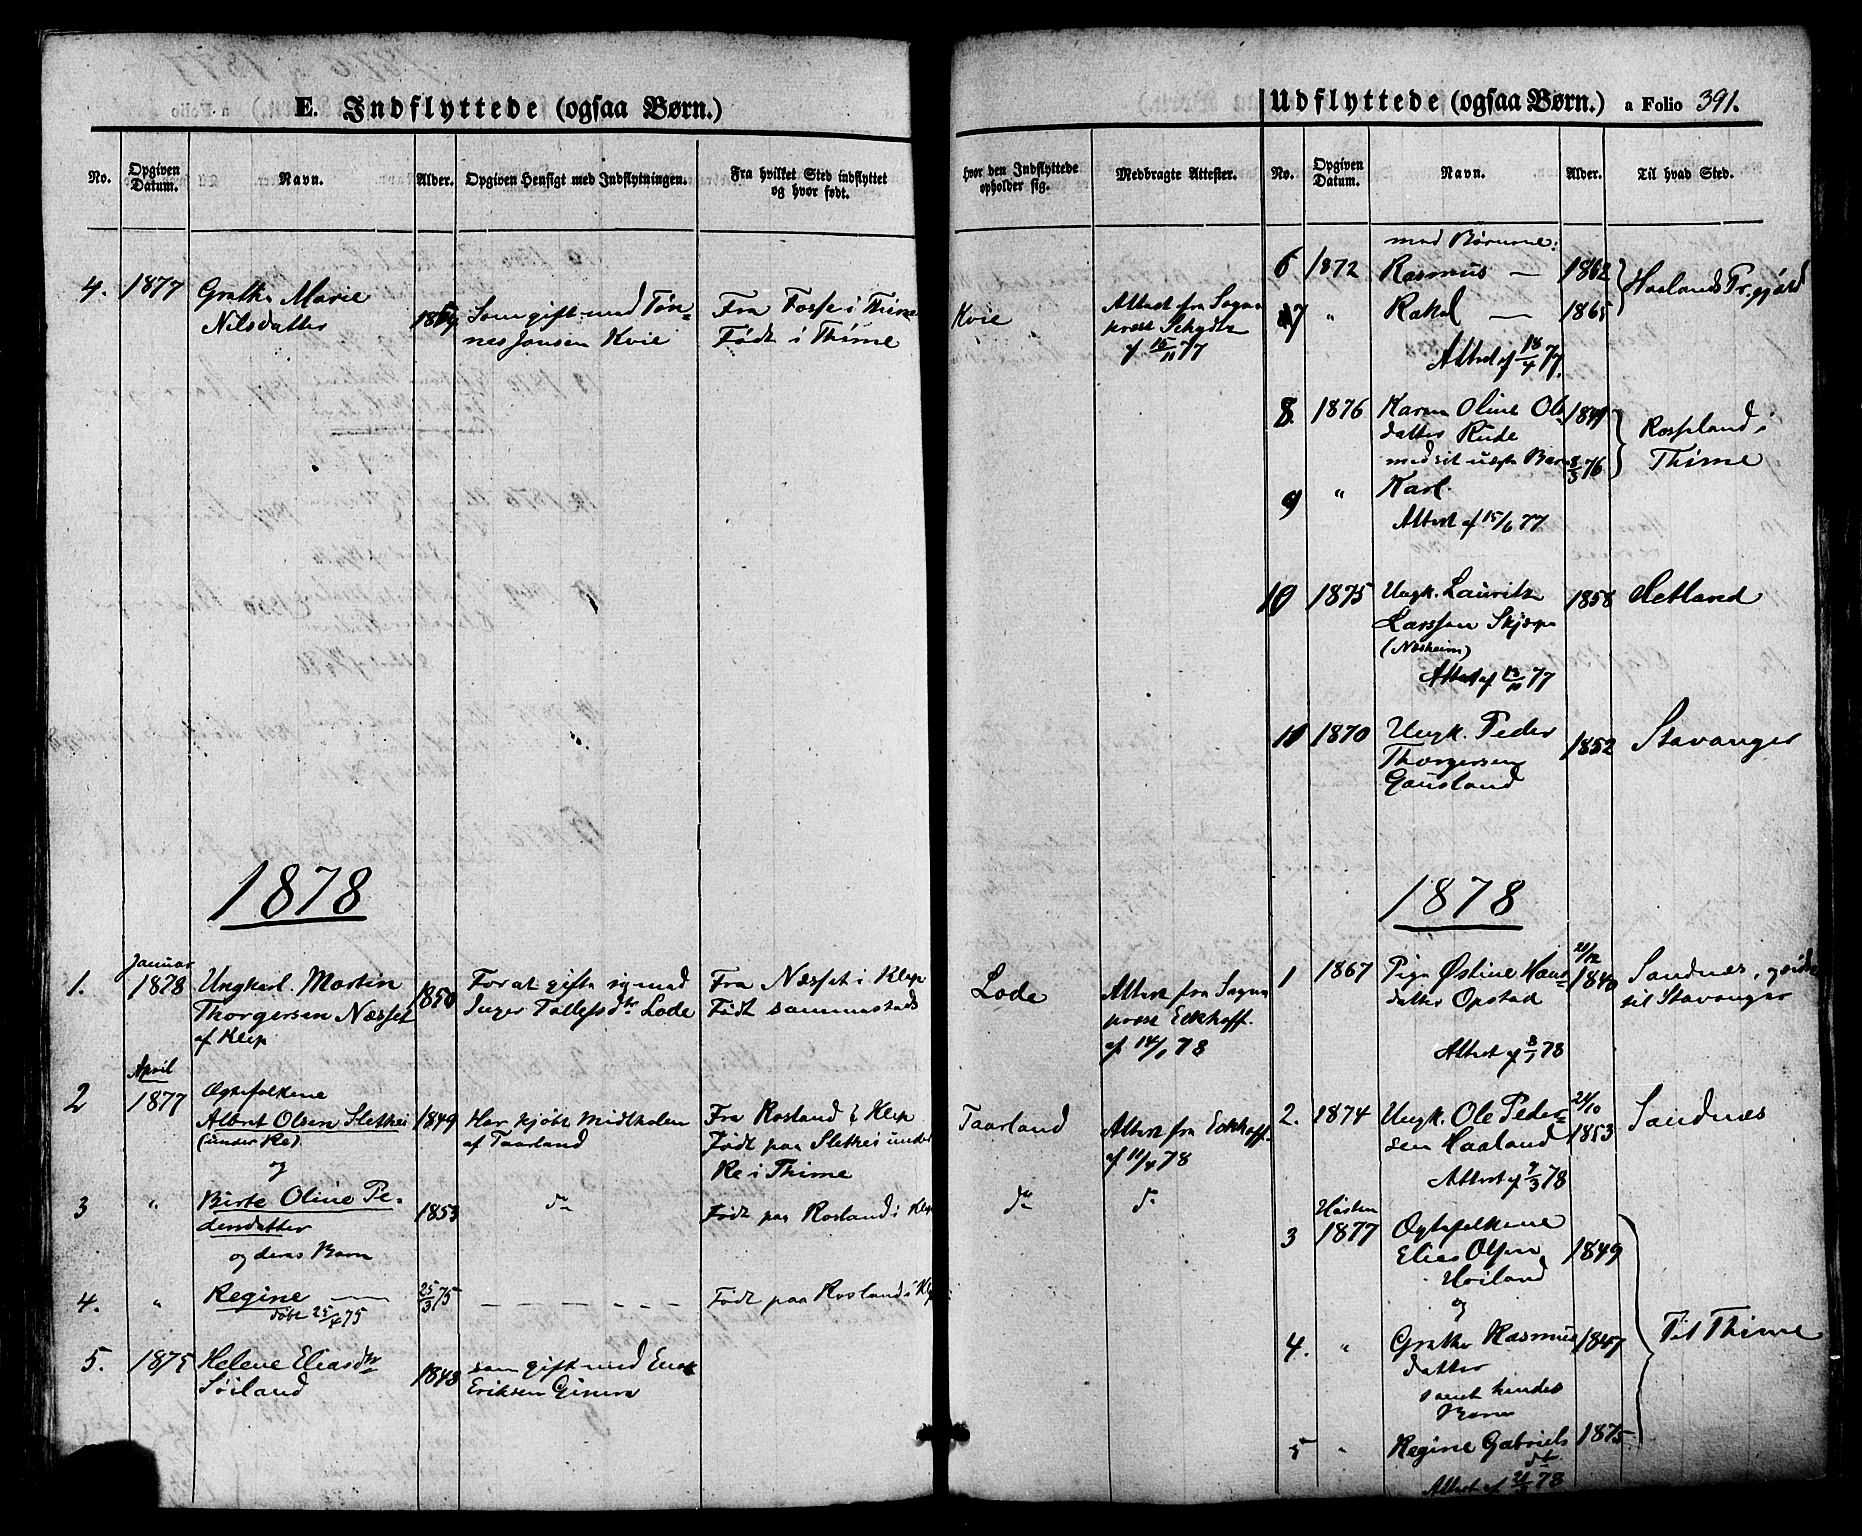 E. Indflyttede (ogsaa Børn.)
No.
Opgiven Datum.
Navn.
Alder.
Opgiven Hensigt med Indflytningen.
Fra hvilket Sted indflyttet og hvor født.
hvor den Indflyttede opholder sig.
Medbragte Attester.
4. 1877 Grethe Marie Som gift med Tøn- Fra Fosse i Thime Kvie Attest fra Sogne
Nilsdatter nes Jonsen Kvie Født i Thime prest
af 15/11 77
1878
Januar
1. 1878 Ungkarl. Martin 1850 For at gifte sig med Fra Næsset i Klep Lode Attest fra Sogne
Thorgersen Næsset Inger Tollefsdtr Lode Født sammestads prest Eckhoff.
af Klep af 14/1 78
April
2 1877 Ægtefolkene
Albert Olsen Slethei 1849 Har kjøbt Midholen Fra Rosland i Klep Taarland Attest fra Eckhoff.
(under Re). af Taarland Født paa Slethei under af 11/4 78
og Re i Thime
3 " Birte Oline Pe- 1853 do Født paa Rosland i Klep do do
dersdatter
og deres Barn
4. " Regine — 25/3 75 — — — — — Født paa Rosland i Klep
døbt 25/4 75
5. 1875 Helene Eliasdtr 1843 som gift med
Søiland Eriksen
Udflyttede (ogsaa Børn.) a Folio 391.
No.
Opgiven Datum.
Navn.
Alder.
Til hvad Sted.
med Børnene:
6 1872 Rasmus — 1862 Haalands Pr.gjæld
7 " Rakel — 1865
Attest af 18/4 77.
8. 1876 Karen Oline Ols Rosseland i
datter Rude Thime
med sit uægte Barn 8/3 76
9 " Karl.
Attest af 15/6 77
10 1875 Ungk. Lauritz 1858 Hetland
Larssen
(Næsheim)
Attest af 13/10 77
11 1870 Ungk. Peder 1852 Stavanger
Thorgersen
Gausland
1878
1 1867 Pige Østine Hans 21/12 1840 Sandnæs, og
datter Opstad til Stavanger
Attest af 8/1 78
2. 1874 Ungk. Ole Peder 24/10 1853 Sandnæs
sen Haaland
Attest af 7/3 78
Høsten
3 1877 Ægtefolkene
Elias Olsen 1849
Høiland
og
4. " Grethe Rasmus 1847 Til Thime
datter
samt hendes
Barn
5 " Regine Gabriels 1875
dtr
Attest af 78